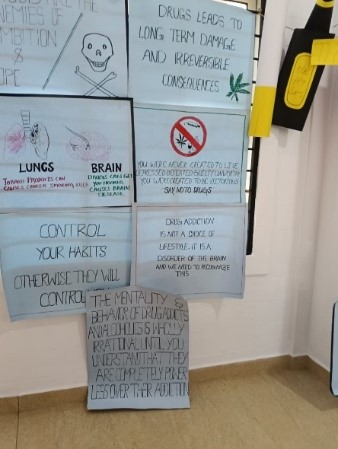 ENEMIES OF
AMBITION
&
HOPE
DRUGS LEADS TO
LONG TERM DAMAGE
AND IRREVERSIBLE
CONSEQUENCES
LUNGS
BRAIN
CAUSES
CAUSES BRAIN
YOU WERE NEVER CREATED TO LIVE
DEPRESSED DEFEATED GUILTY
YOU WERE CREATED TO BE VICTORIOUS
SAY NO TO DRUGS
CONTROL
YOUR HABITS
OTHERWISE THEY WILL
CONTROL
DRUG ADDICTION
IS NOT A CHOICE OF
LIFESTYLE. IT IS A
DISORDER OF THE BRAIN
AND WE NEED TO RECOGNISE
THIS
THE MENTALITY &
BEHAVIOR OF DRUG ADDICTS
& WHOLLY
IRRATIONAL UNTIL YOU
UNDERSTAND THAT THEY
ARE COMPLETELY POWER
LESS OVER THEIR ADDICTION